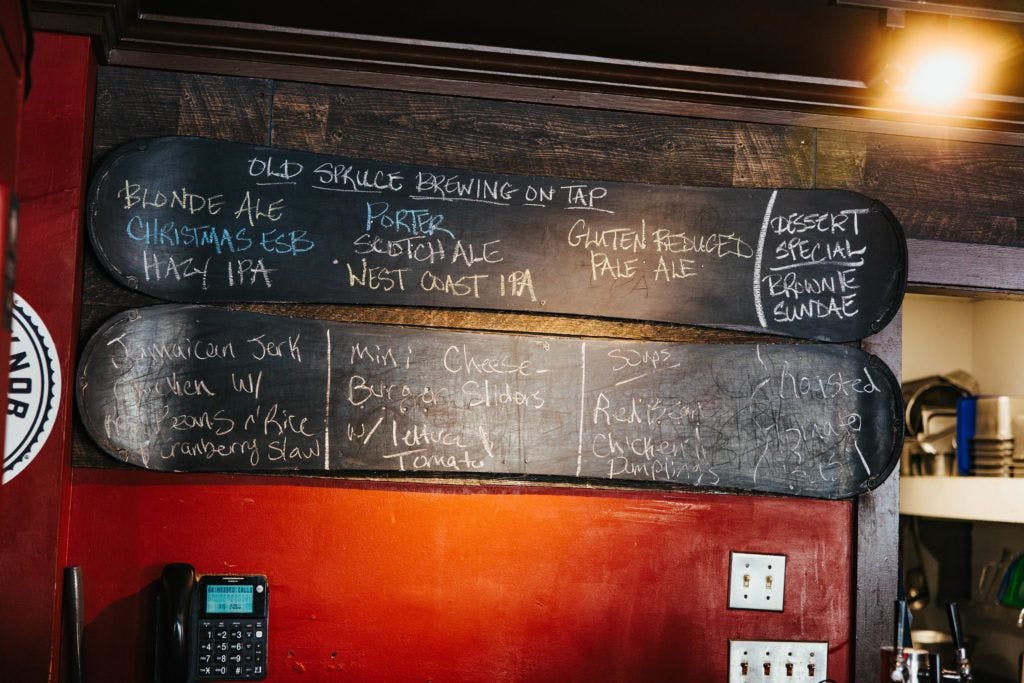 OLD SPRUCE BREWING ON TAP
BLONDE ALE
CHRISTMAS ESB
HAZY IPA
PORTER
SCOTCH ALE
WEST COAST IPA
GLUTEN REDUCED
PALE ALE
DESSERT
SPECIAL
BROWNIE
SUNDAE
Jamaican Jerk
Chicken W/
Beans n' Rice
Cranberry Slaw
Mini Cheese-
Burger Sliders
w/ lettuce
Tomato
Soups
Red Bean
Chicken
Dumplings
Roasted
Tomato